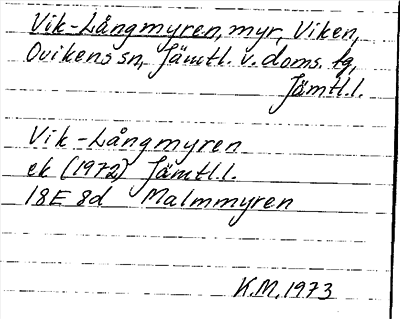 Vik-Långmyren, myr, Viken,
Ovikens sn, Jämtl. v. doms. tg,
Jämtl.l.
Vik-Långmyren
ek (1972) Jämtl.l.
18E 8d Malmmyren
K.M. 1973